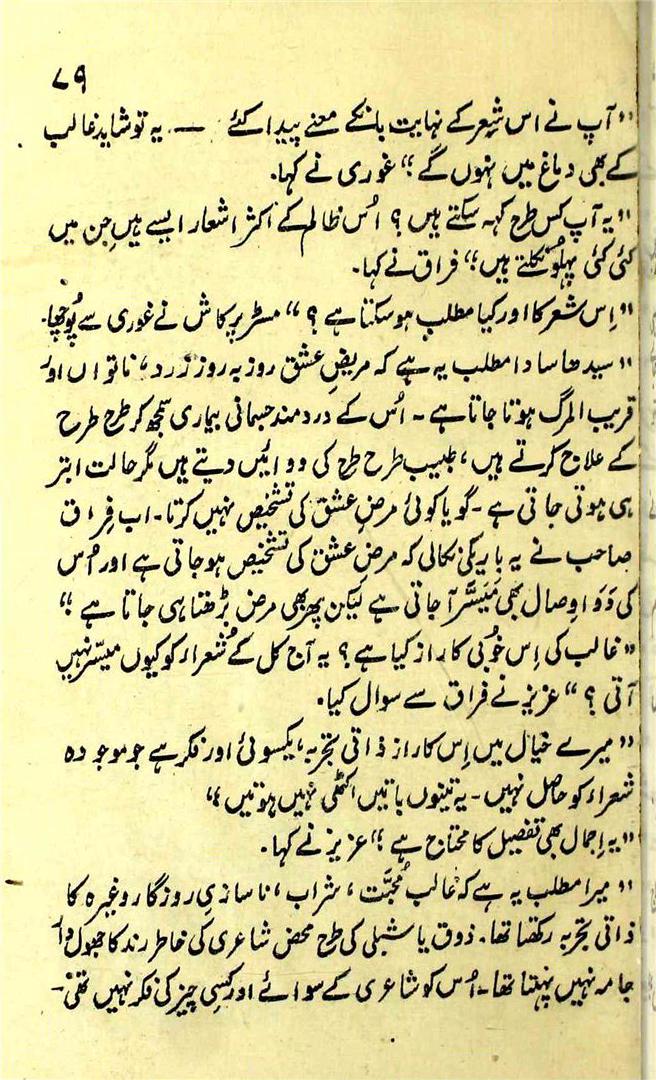 ۷۹
"آپ نے اس شعر کے نہایت بانکے معنے پیدا کئے — یہ تو شاید غالب
کے بھی دماغ میں نہوں گے" غوری نے کہا۔
"یہ آپ کس طرح کہہ سکتے ہیں؟ اُس ظالم کے اکثر اشعار ایسے ہیں جن میں
کئی کئی پہلو نکلتے ہیں" فراق نے کہا۔
"اِس شعر کا اور کیا مطلب ہو سکتا ہے؟" مسٹر پرکاش نے غوری سے پُوچھا۔
"سیدھا سادا مطلب یہ ہے کہ مریضِ عشق روز بہ روز زرد، ناتواں اور
قریب المرگ ہوتا جاتا ہے۔ اُس کے دردمند جسمانی بیماری سمجھ کر طرح طرح
کے علاج کرتے ہیں، طبیب طرح طرح کی دوائیں دیتے ہیں مگر حالت ابتر
ہی ہوتی جاتی ہے۔ گویا کوئی مرضِ عشق کی تشخیص نہیں کرتا۔ اب فِراق
صاحب نے یہ باریکی نکالی کہ مرضِ عشق کی تشخیص ہو جاتی ہے اور اُس
کی دَوَا وِصال بھی مَیَسَّر آ جاتی ہے لیکن پھر بھی مرض بڑھتا ہی جاتا ہے"
"غالب کی اِس خُوبی کا راز کیا ہے؟ یہ آج کل کے شُعراء کو کیوں میسّر نہیں
آتی؟" عزیز نے فراق سے سوال کیا۔
"میرے خیال میں اِس کا راز ذاتی تجربہ، یکسوئی اور فکر ہے جو موجودہ
شعراء کو حاصل نہیں۔ یہ تینوں باتیں اکٹھی نہیں ہوتیں"
"یہ اِجمال بھی تفصیل کا محتاج ہے" عزیز نے کہا۔
"میرا مطلب یہ ہے کہ غالب مُحبّت، شراب، ناسازیِ روزگار وغیرہ کا
ذاتی تجربہ رکھتا تھا۔ ذوق یا شبلی کی طرح محض شاعری کی خاطر رند کا جھول دار
جامہ نہیں پہنتا تھا۔ اُس کو شاعری کے سوائے اور کسی چیز کی فکر نہیں تھی۔